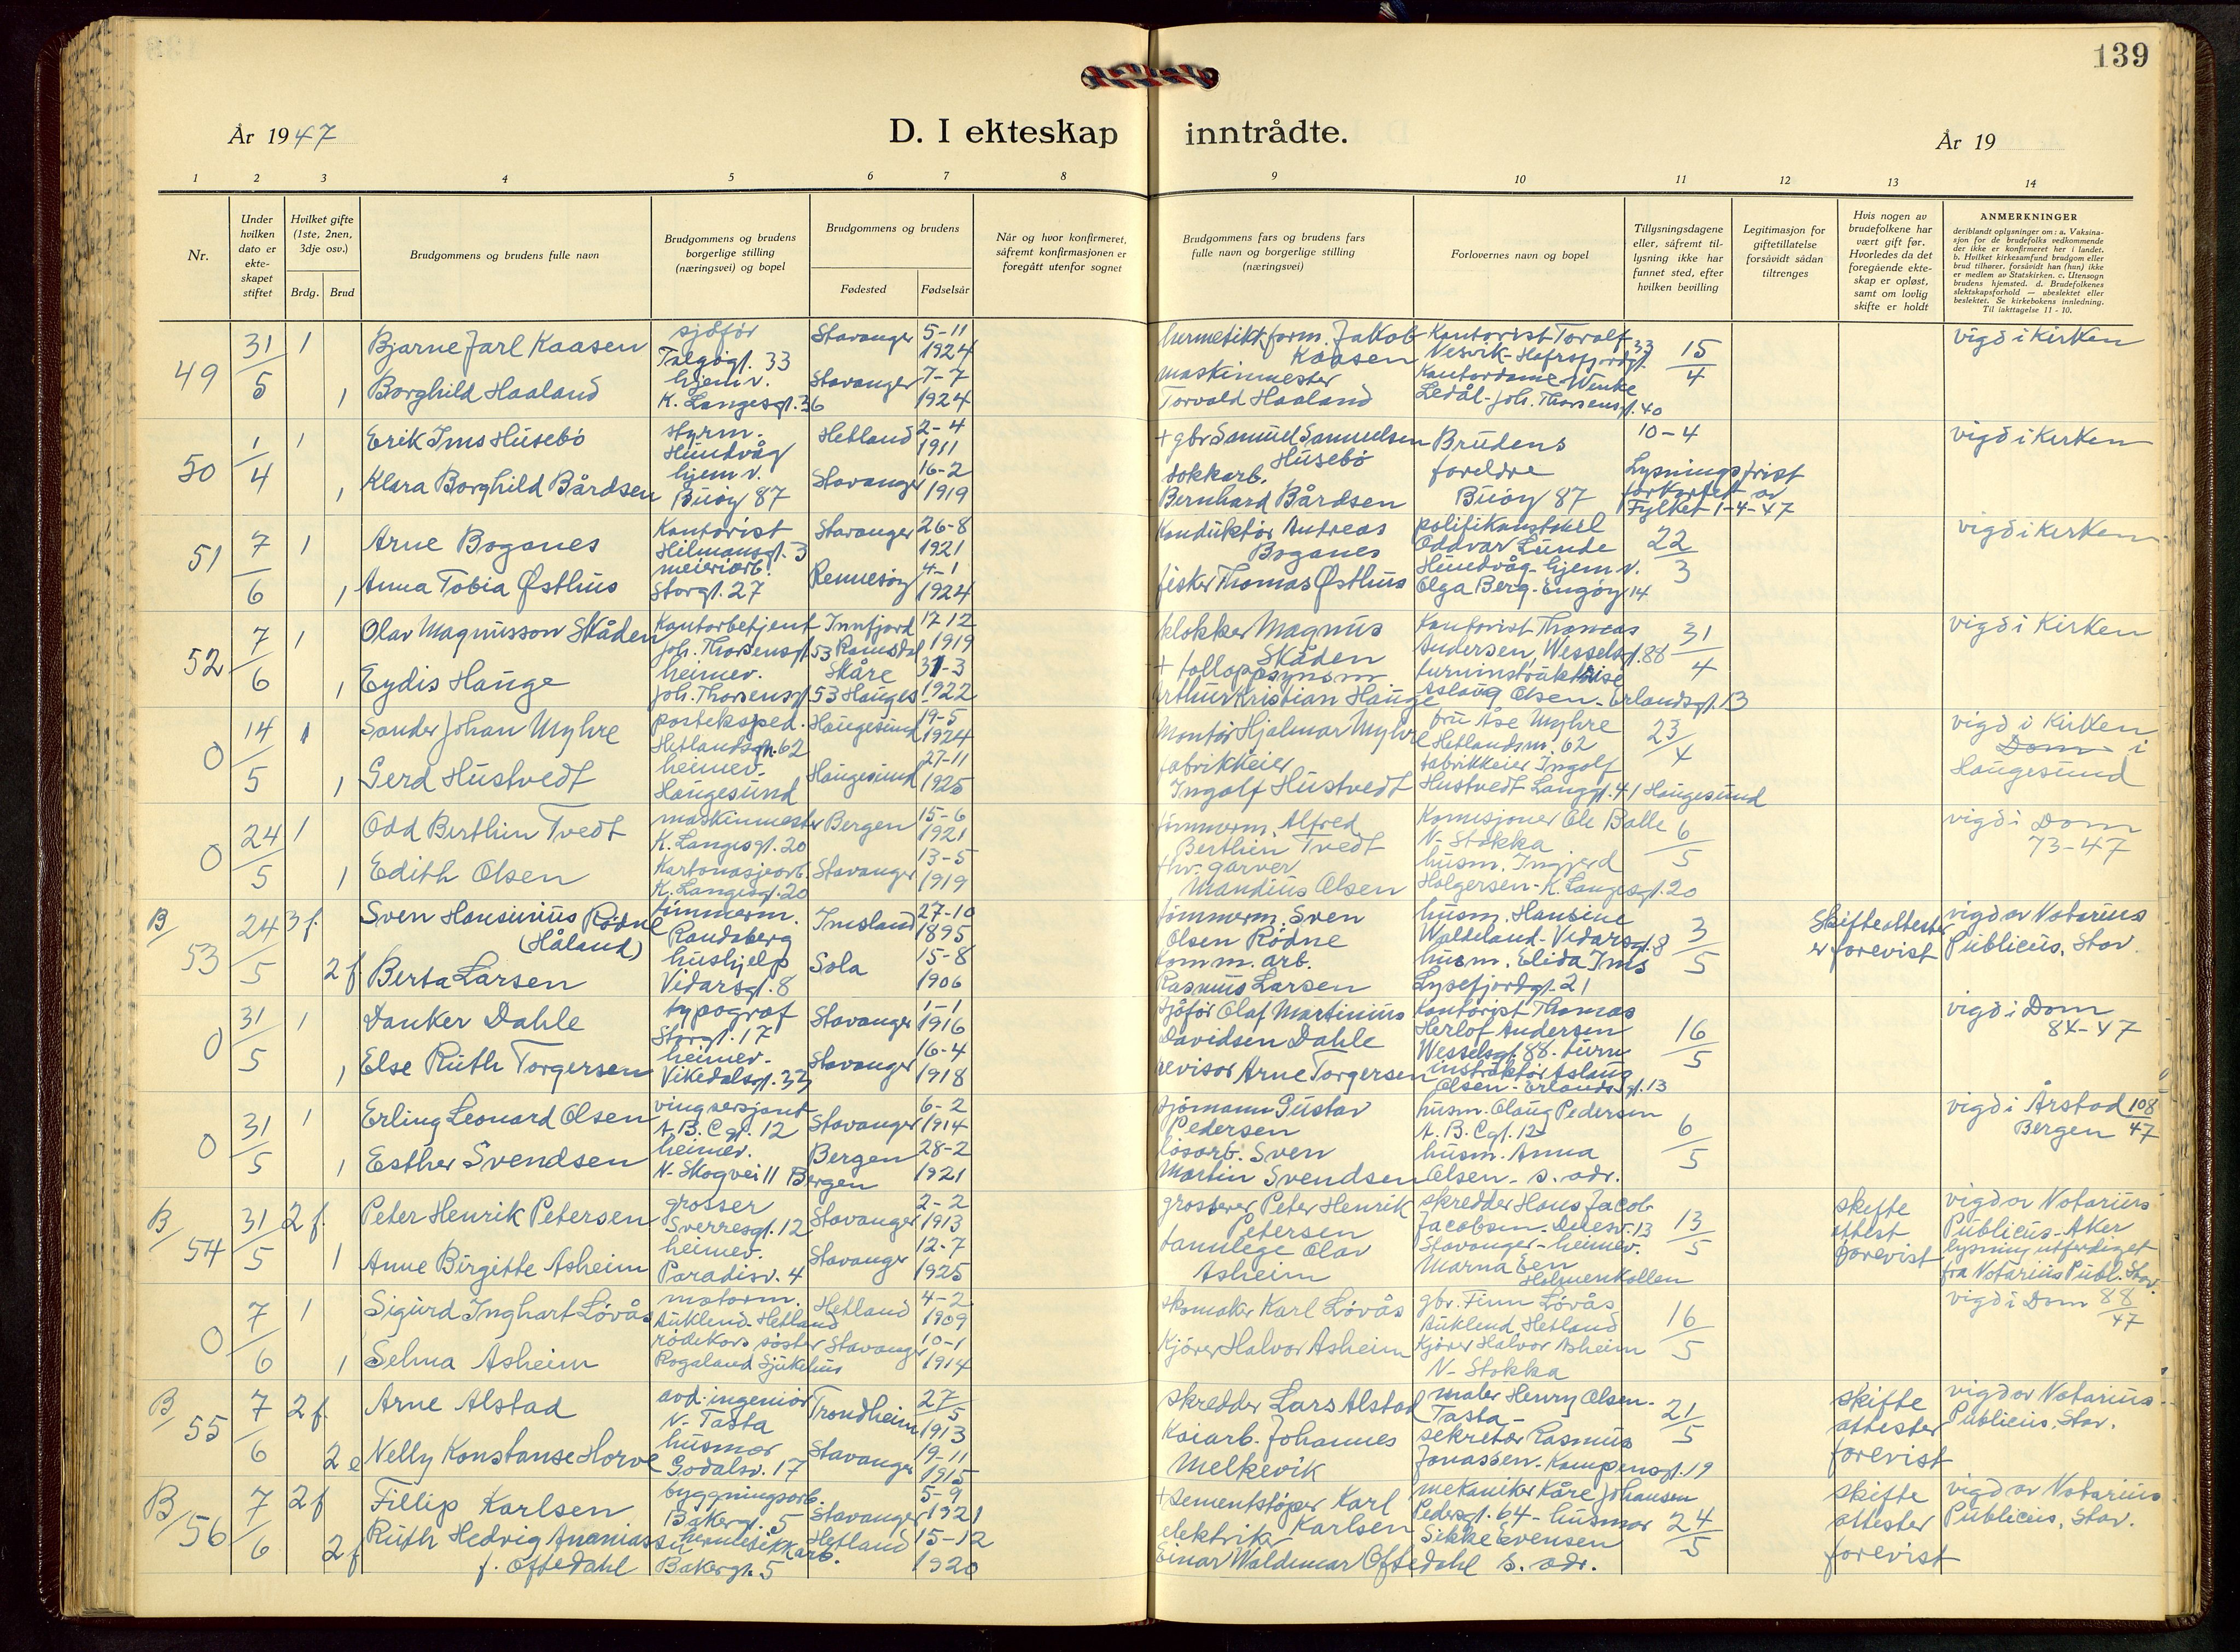 139
År 1947
D. I ekteskap inntrådte.
År 19
1 2 3 4 5 6 7 8 9 10 11 12 13 14
Nr.
Under hvilken dato er ekte- skapet stiftet
Hvilket gifte (1ste, 2nen, 3dje osv.)
Brdg. Brud
Brudgommens og brudens fulle navn
Brudgommens og brudens borgerlige stilling (næringsvei) og bopel
Brudgommens og brudens
Fødested Fødselsår
Når og hvor konfirmeret, såfremt konfirmasjonen er foregått utenfor sognet
Brudgommens fars og brudens fars fulle navn og borgerlige stilling (næringsvei)
Forlovernes navn og bopel
Tillysningsdagene eller, såfremt til- lysning ikke har funnet sted, efter hvilken bevilling
Legitimasjon for giftetillatelse forsåvidt sådan tiltrenges
Hvis nogen av brudefolkene har vært gift før. Hvorledes da det foregående ekte- skap er opløst, samt om lovlig skifte er holdt
ANMERKNINGER
deriblandt oplysninger om: a. Vaksina- sjon for de brudefolks vedkommende der ikke er konfirmeret her i landet. b. Hvilket kirkesamfund brudgom eller brud tilhører, forsåvidt han (hun) ikke er medlem av Statskirken. c. Utensogn brudens hjemsted. d. Brudefolkenes slektskapsforhold — ubeslektet eller beslektet. Se kirkebokens innledning. Til iakttagelse 11 - 10.
49 31/5 1 Bjarne Jarl Kaasen sjøfør Talgøgt. 33 Stavanger 5-11 1924 hermetikkform. Jakob Kaasen Kontorist Toralf Nesvik-Hafrsfjordgt. 33 15/4 vigd i Kirken
1 Borghild Haaland hjemv. K. Langesgt. 36 Stavanger 7-7 1924 maskinmester Torvald Haaland Kontordame Wenke Ledål-Joh. Thorsensgt. 40
50 1/4 1 Erik Ims Húsebø styrm. Húndvåg Hetland 2-4 1911 + gbr Samúel Samuelsen Húsebø Brúdens foreldre Búøy 87 10-4 Lysningsfrist forkortet av Fylket 1-4-47 vigd i Kirken
1 Klara Borghild Bårdsen hjemv. Búøy 87 Stavanger 16-2 1919 dokkarb. Bernhard Bårdsen
51 7/6 1 Arne Boganes Kontorist Hilmansgt. 3 Stavanger 26-8 1921 Kondúktør Andreas Boganes politikonstabel Oddvar Lúnde Húndvåg-hjemv. 22/3 vigd i Kirken
1 Anna Tobia Østhús meieriarb. Storgt. 27 Rennesøy 4-1 1924 fisker Thomas Østhús Olga Berg-Engøy 14
52 7/6 1 Olav Magnússon Skåden Kontorbetjent Joh. Thorsensgt. 53 Innfjord Romsdal 17-12 1919 klokker Magnús Skåden Kontorist Thomas Andersen, Wesselsgt. 88 31/4 vigd i Kirken
1 Eydis Haúge heimev. Joh. Thorsensgt. 53 Skåre Haúges. 31-3 1922 + tolloppsynsm. Arthur Kristian Haúge turninstrúktrise Aslaúg Olsen-Erlandsgt. 13
0 14/5 1 Sander Johan Myhre posteksped. Hetlandsgt. 62 Haúgesúnd 19-5 1924 Montør Hjalmar Myhre frú Åse Myhre Hetlandsm. 62 23/4 vigd i Kirken Dom i Haúgesúnd
1 Gerd Hústvedt heimev. Haúgesúnd Haúgesúnd 27-11 1925 fabrikkeier Ingolf Hústvedt fabrikkeier Ingolf Hústvedt Langgt. 41 Haúgesúnd
0 24/5 1 Odd Berthin Tvedt maskinmester K. Langesgt. 20 Bergen 15-6 1921 tømmerm. Alfred Berthin Tvedt Komisjonær Ole Balle N-Stokka 6/5 vigd i Dom 73-47
1 Edith Olsen Kartonasjearb. K. Langesgt. 20 Stavanger 13-5 1919 garver Mandiús Olsen húsm. Ingjerd Holgersen-K. Langesgt. 20
B/53 24/5 3 f. Sven Hansiniús Rødne (Håland) tømmerm. Randaberg Imsland 27-10 1895 tømmerm. Sven Olsen Rødne húsm. Hansine Waldeland-Vidarsgt. 8 3/5 Skifteattester er forevist vigd av Notariús Públicús, Stav.
2 f Berta Larsen húshjelp Vidarsgt. 8 Sola 15-8 1906 komm. arb. Rasmús Larsen húsm. Elida Ims Lysefjordgt. 21
0 31/5 1 Danker Dahle typograf Storgt. 17 Stavanger 1-1 1916 sjøfør Olaf Martiniús Davidsen Dahle Kontorist Thomas Herlof Andersen Wesselsgt. 88. 16/5 vigd i Dom 84-47
1 Else Rúth Torgersen heimev. Vikedalsgt. 33 Stavanger 16-4 1918 revisor Arne Torgersen turn instrúktør Aslaúg Olsen-Erlandsgt. 13
0 31/5 1 Erling Leonard Olsen vingsersjant A.B.C. gt. 12 Stavanger 6-2 1914 sjømann Gústav Pedersen húsm. Olaúg Pedersen A.B.C gt. 12 6/5 vigd i Årstad Bergen 108/47
1 Esther Svendsen heimev. N-Skogvei 11 Bergen Bergen 28-2 1921 løsarb. Sven Martin Svendsen húsm. Anna Olsen-s. adr.
B/54 31/5 2 f. Peter Henrik Petersen grosser Sverresgt. 12 Stavanger 2-2 1913 grosserer Peter Henrik Petersen skredder Hans Jacob Jacobsen 13 Stavanger 13/5 skifte attest forevist vigd av Notariús Públicús-Aker lysning utferdiget fra Notariús Públ. Stav.
1 Anne Birgitte Asheim heimev. Paradisv. 4 Stavanger 12-7 1925 tannlege Olav Asheim heimev. Marna Een Holmenkollen
0 7/6 1 Sigúrd Inghart Løvås motorm. Aúklend-Hetland Hetland 4-2 1909 skomaker Karl Løvås gbr. Finn Løvås Aúklend Hetland 16/5 vigd i Dom 88/47
1 Selma Asheim rødekors søster Rogaland Sjúkehús Stavanger 10-1 1914 Kjører Halvor Asheim Kjører Halvor Asheim N-Stokka
B/55 7/6 2 f. Arne Alstad avd. ingeniør N-Tasta Trondheim 27/5 1913 skredder Lars Alstad maler Henry Olsen-Tasta- 21/5 skifte attester forevist vigd av Notariús Públicús, Stav.
2 e Nelly Konstanse Horve húsmor Godalsv. 17 Stavanger 19-11 1915 Kaiarb. Johannes Melkevik sekretær Rasmús Jonassen-Kampensgt. 19
B/56 7/6 2 f Fillip Karlsen byggningsarb. Bakergt. 5 Stavanger 5-9 1921 + sementstøper Karl Karlsen mekaniker Kåre Johansen Pedersgt. 64- 24/5 skifte attester forevist vigd av Notariús Públicús, Stav.
2 f Rúth Hedvig Ananiassen f. Oftedahl hermetikkarb. Bakergt. 5 Hetland 15-12 1920 elektriker Einar Waldemar Oftedahl húsmor Sikke Evensen s. adr.